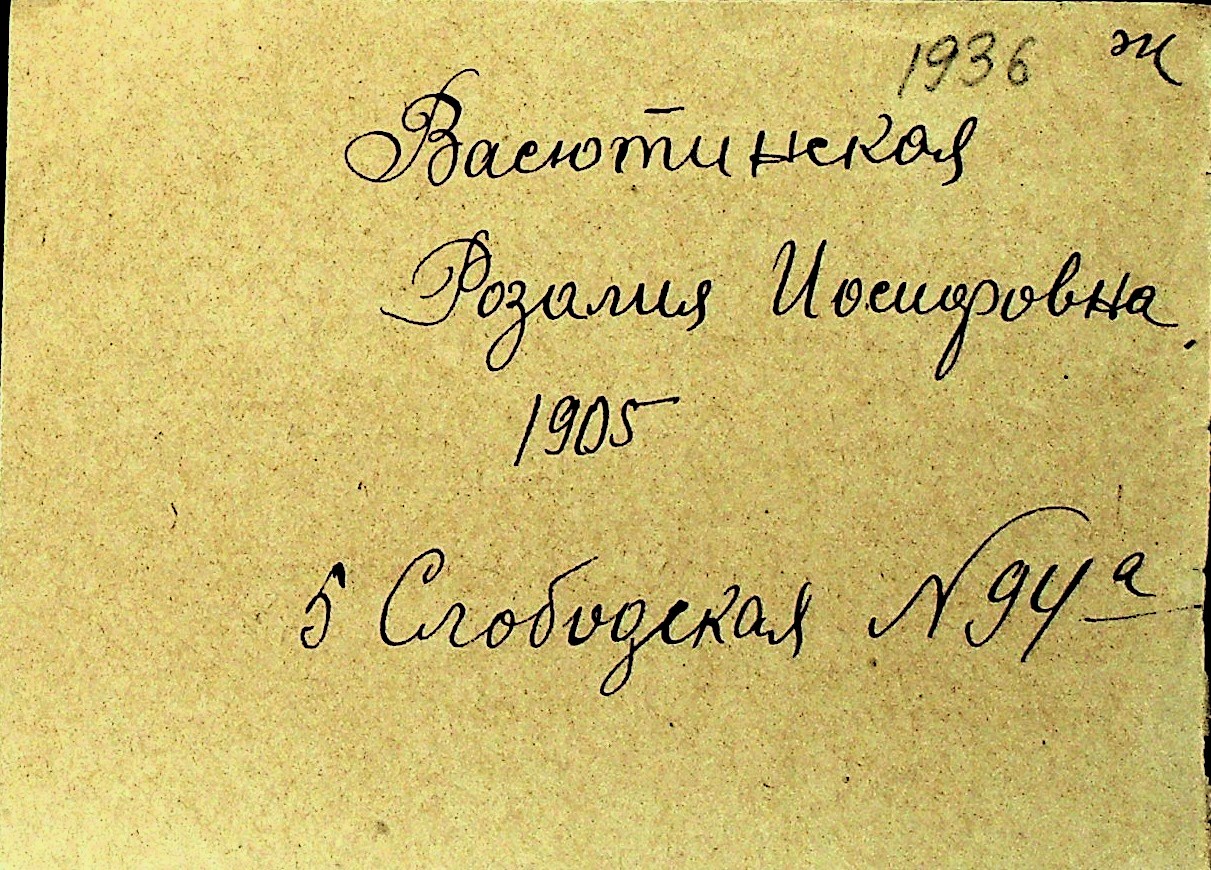 1936 ж
Васютинская
Розалия Иосифовна.
1905
5 Слободская N 94а